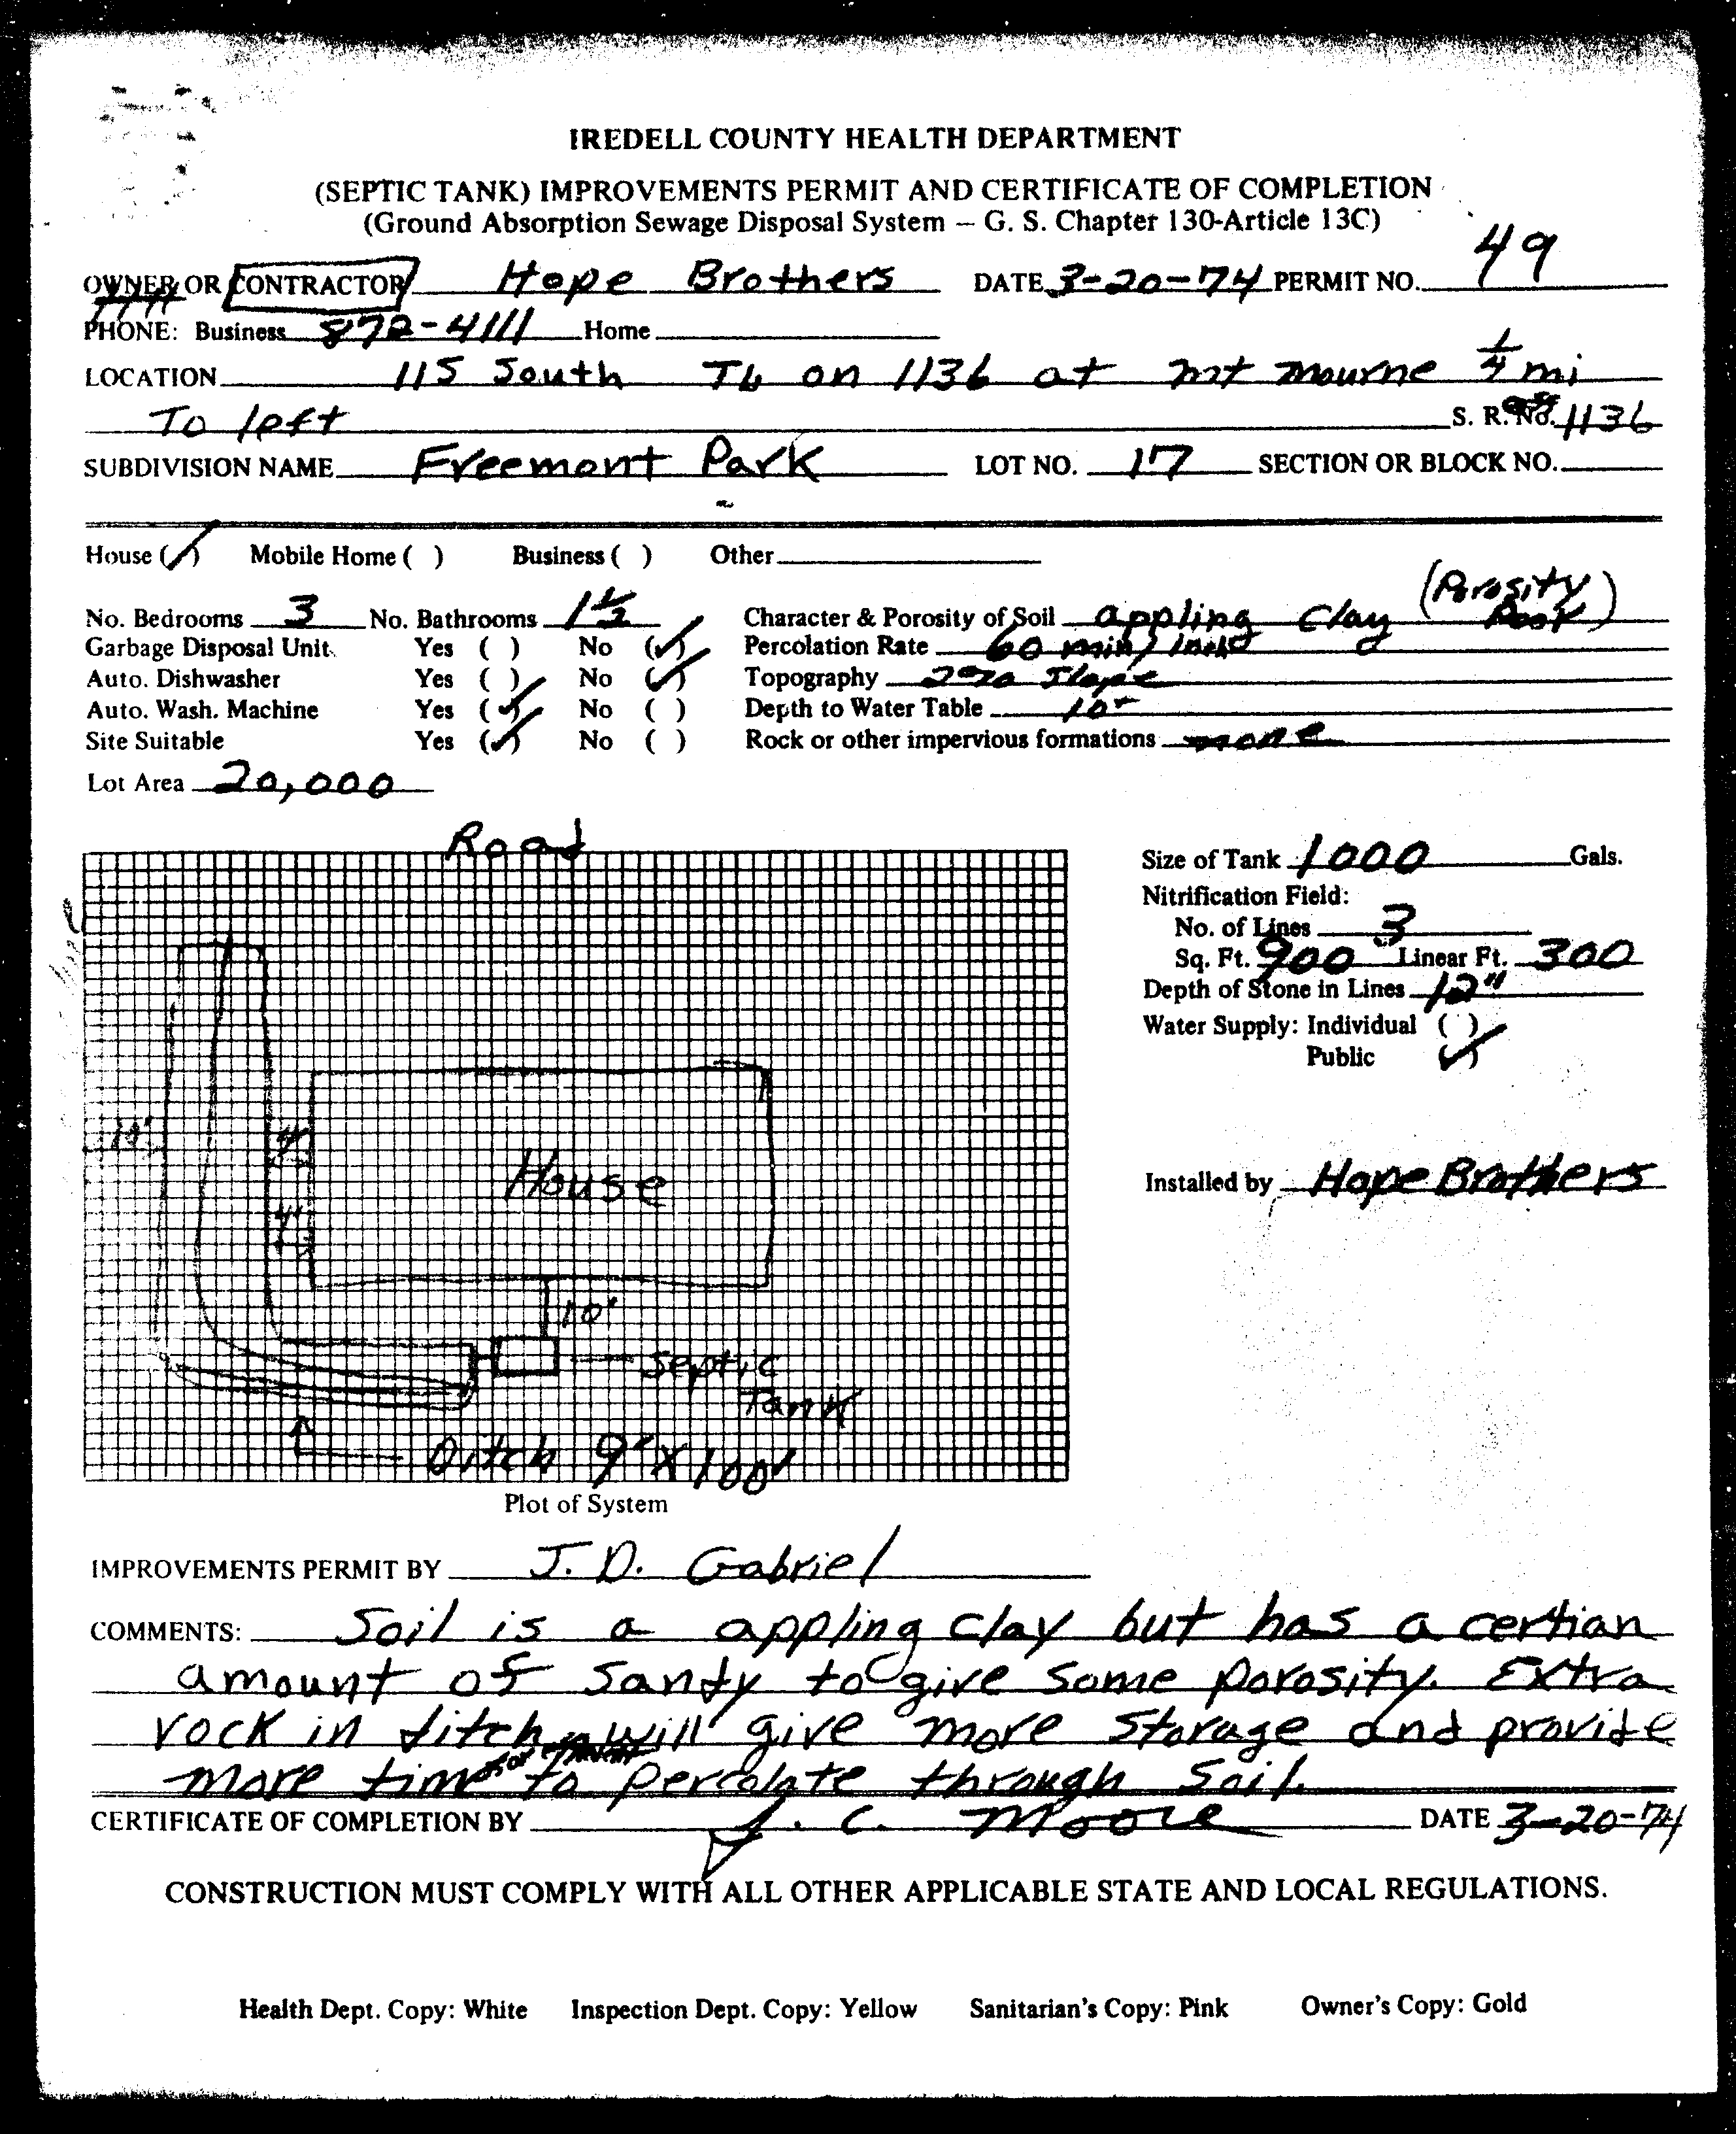 IREDELL COUNTY HEALTH DEPARTMENT
(SEPTIC TANK) IMPROVEMENTS PERMIT AND CERTIFICATE OF COMPLETION
(Ground Absorption Sewage Disposal System – G. S. Chapter 130-Article 13C)
OWNER OR CONTRACTOR Hope Brothers DATE 3-20-74 PERMIT NO. 49
PHONE: Business 872-4111 Home
LOCATION 115 South TL on 1136 at mt mourne 1/4 mi
To left S. R. No. 1136
SUBDIVISION NAME Freemont Park LOT NO. 17 SECTION OR BLOCK NO.
House (✓) Mobile Home ( ) Business ( ) Other
No. Bedrooms 3 No. Bathrooms 1 1/2 Character & Porosity of Soil appling Clay (Porosity Poor)
Garbage Disposal Unit Yes ( ) No (✓) Percolation Rate 60 min/inch
Auto. Dishwasher Yes ( ) No (✓) Topography 2% Slope
Auto. Wash. Machine Yes (✓) No ( ) Depth to Water Table 10'
Site Suitable Yes (✓) No ( ) Rock or other impervious formations none
Lot Area 20,000
Road
Size of Tank 1000 Gals.
Nitrification Field:
No. of Lines 3
Sq. Ft. 900 Linear Ft. 300
Depth of Stone in Lines 12"
Water Supply: Individual ( )
Public (✓)
10'
House
Installed by Hope Brothers
10'
Septic
Tank
Ditch 9' X 100'
Plot of System
IMPROVEMENTS PERMIT BY J. D. Gabriel
COMMENTS: Soil is a appling clay but has a certian
amount of sandy to give some porosity. Extra
rock in ditch will give more storage and provide
more time for to percolate through soil.
CERTIFICATE OF COMPLETION BY J. C. Moore DATE 3-20-74
CONSTRUCTION MUST COMPLY WITH ALL OTHER APPLICABLE STATE AND LOCAL REGULATIONS.
Health Dept. Copy: White Inspection Dept. Copy: Yellow Sanitarian's Copy: Pink Owner's Copy: Gold